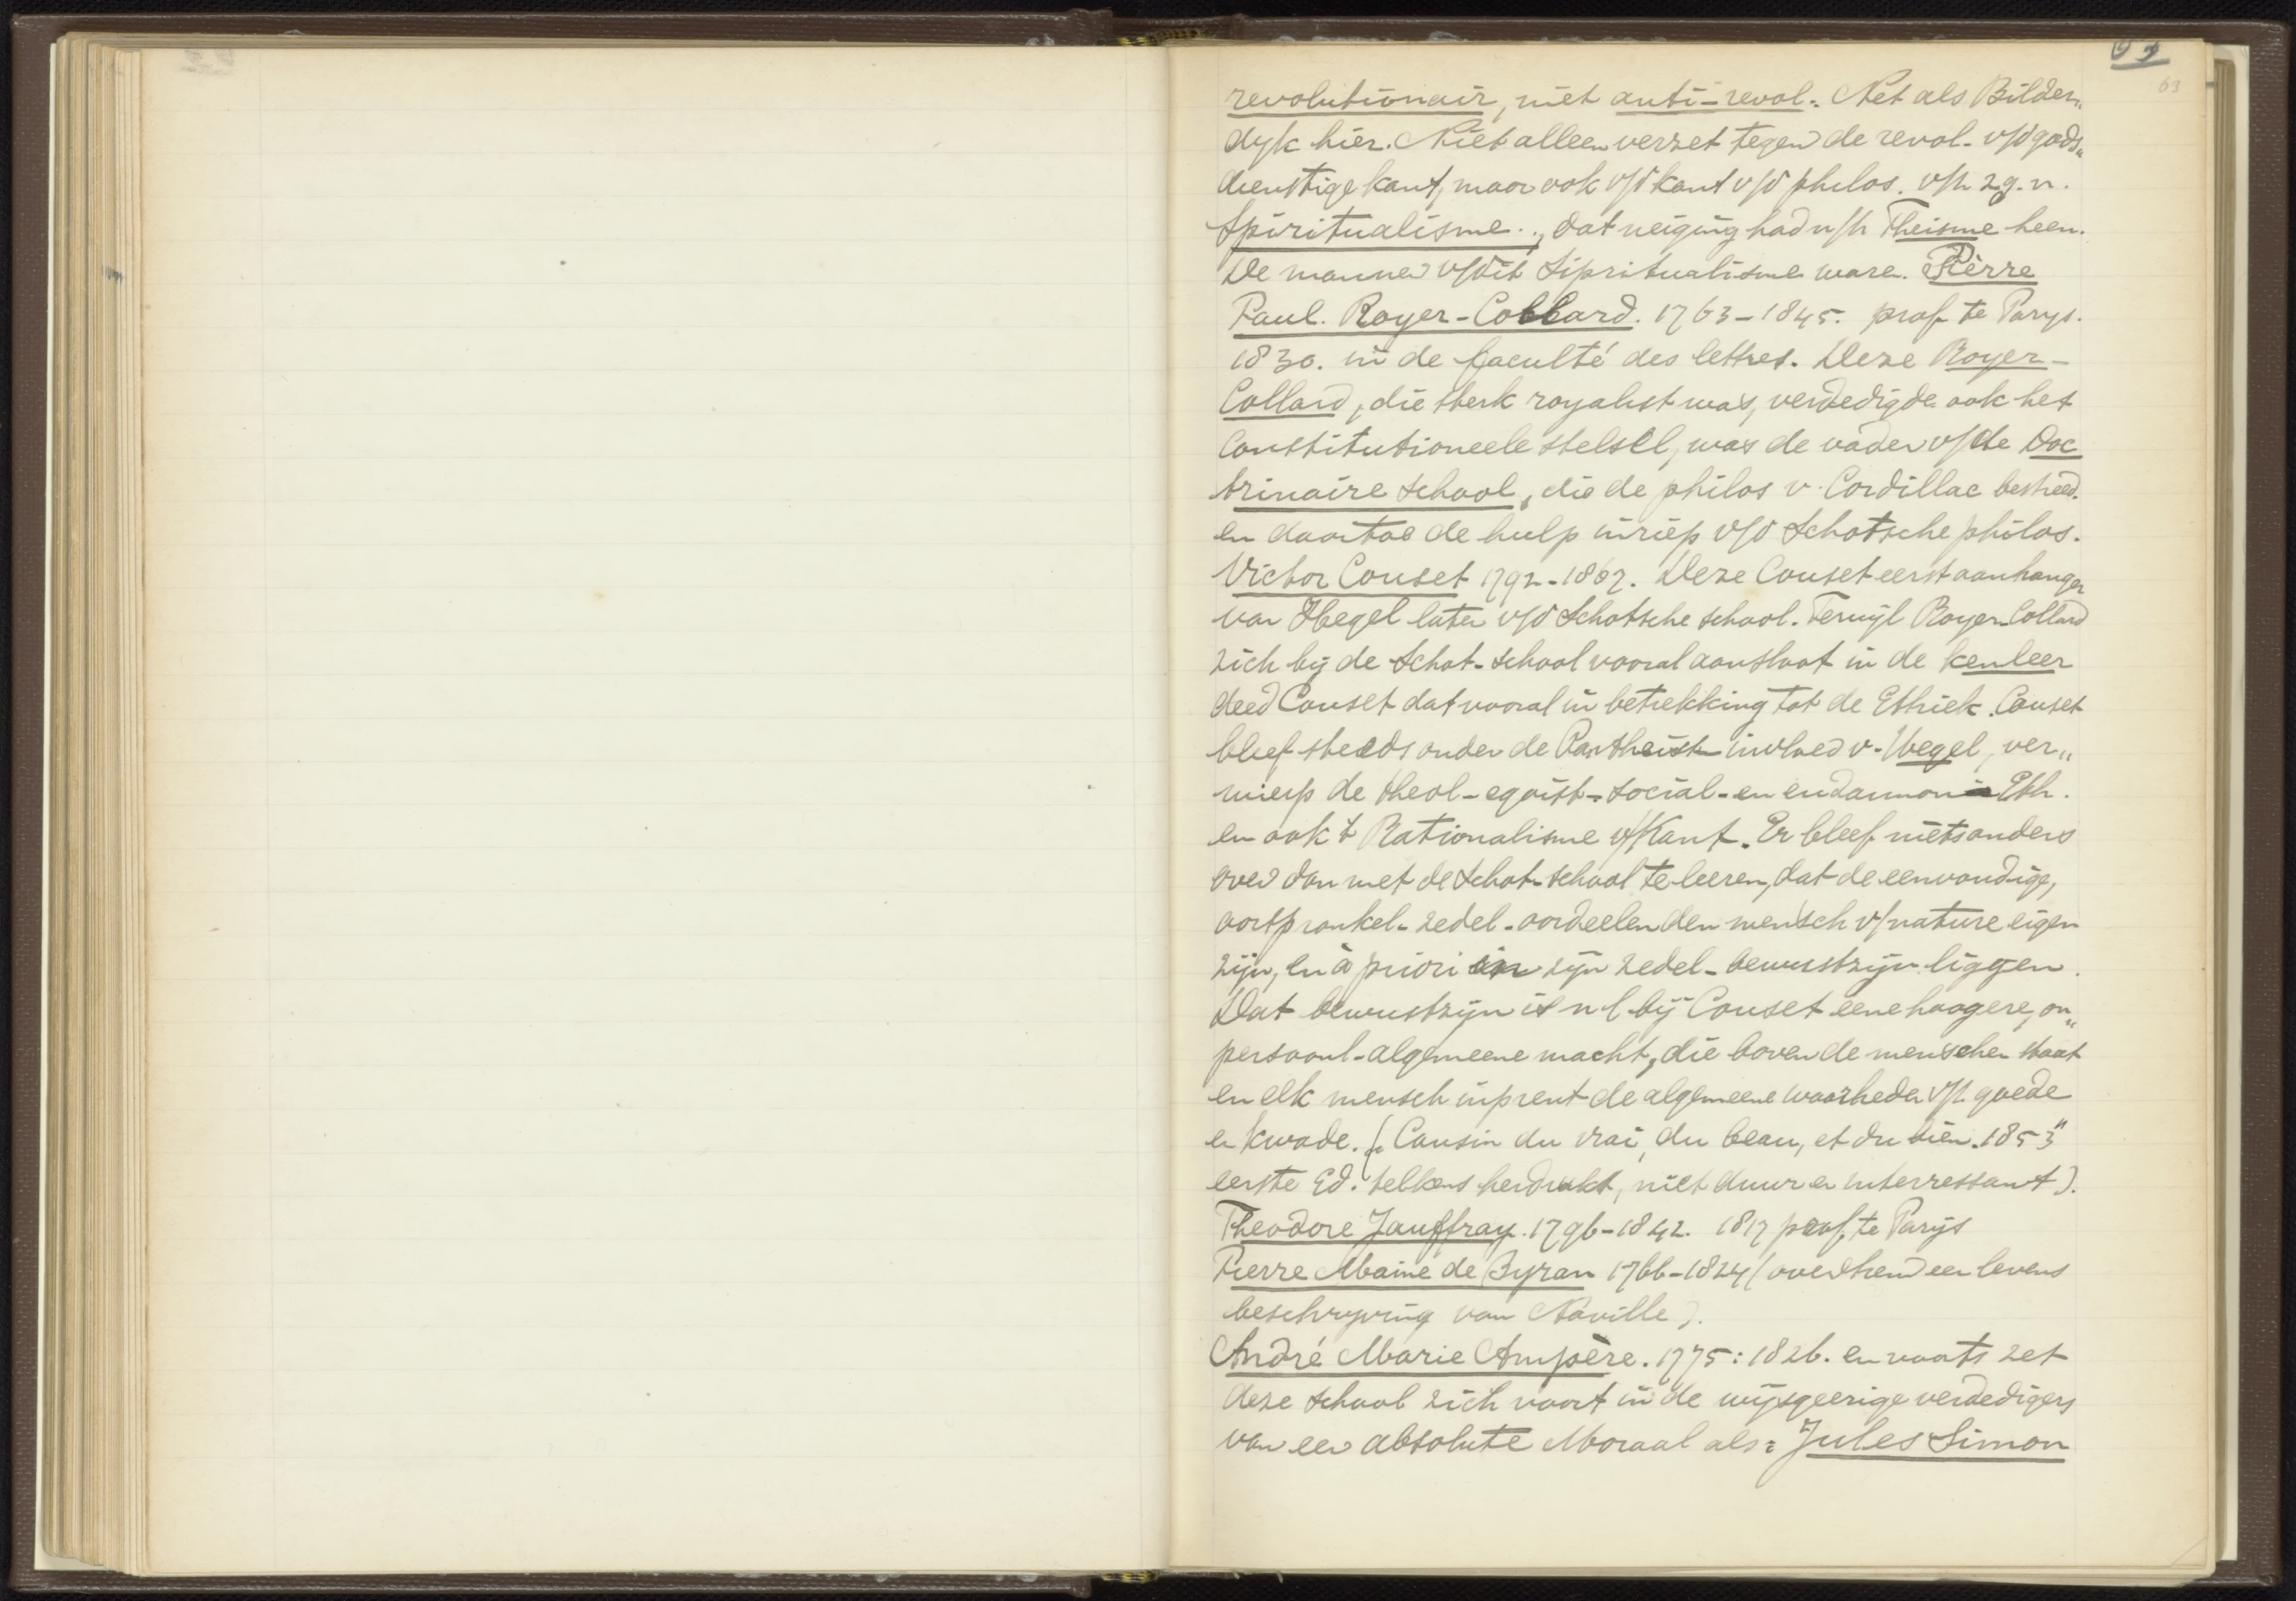 63
revolutionair, niet anti-revol. Net als Bilder„
dyk hier. Niet alleen verzet tegen de revol. v/d gods„
dienstige kant, maar ook v/d kant v/d philos. v/h zg.n.
Spiritualisme., dat neiging had n/h Theisme heen.
De mannen v/dit Sipritualisme ware. Pièrre
Paul. Royer-Collard. 1763-1845. prof te Parys.
1830. in de faculté des lettres. Deze Royer-
Collard, die sterk royalist was, verdedigde ook het
Constitutioneele stelsel, was de vader v/de Doc
trinaire school, die de philos v. Cordillac bestreed.
en daartoe de hulp inriep v/d Schotsche philos.
Victor Couset 1792-1867. Deze Couset eerst aanhanger
van Hegel later v/d Schotsche school. Terwyl Royer-Collard
zich bij de Schot-school vooral aansloot in de kenleer
deed Couset dat vooral in betrekking tot de Ethiek. Couset
bleef steeds onder de Pantheist invloed v. Hegel, ver„
wierp de theol-egoist-social-en eudaimon Eth.
en ook 't Rationalisme v/Kant. Er bleef niets anders
over dan met de Schot-school te leeren, dat de eenvoudige,
oorspronkel. zedel-oordeelen den mensch v/nature eigen
zijn, en à priori in zijn zedel-bewustzijn liggen.
Dat bewustzijn is nl bij Couset eene hoogere, on„
persoonl-algemeene macht, die boven de menschen staat
en elk mensch inprent de algemeene waarheden v/h goede
en kwade. („Cousin du vrai, du beau, et du bien. 1853"
eerste Ed. telkens herdrukt, niet duur en interressant).
Theodore Jauffray. 1796-1842. 1817 prof. te Parijs
Pierre Maine de Byran 1766-1824 (over hem een levens
beschryving van Naville).
André Marie Ampère. 1775:1826. en voorts zet
deze school zich voort in de wijsgeerige verdedigers
van een absolute Moraal als: Jules Simon